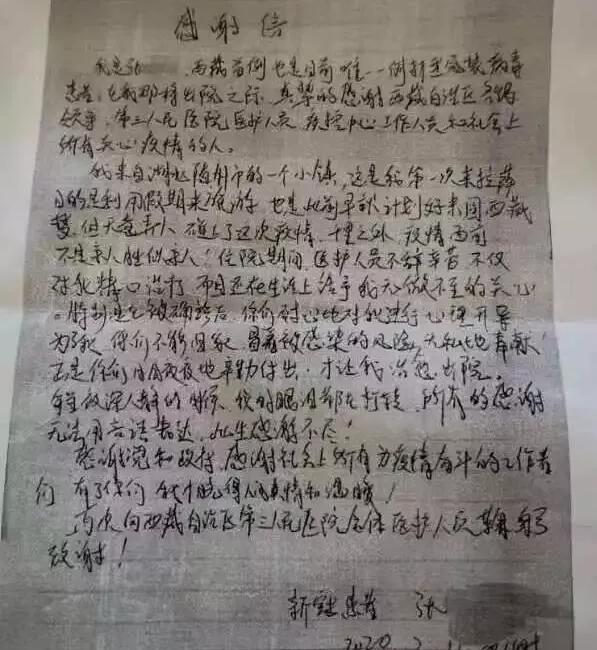 感谢信
我是张 西藏首例也是目前唯一一例新型冠状病毒
患者，在我即将出院之际，真挚的感谢西藏自治区各级
领导，第三人民医院医护人员 疾控中心工作人员和社会上
所有关心疫情的人。
我来自湖北随州市的一个小镇，这是我第一次来拉萨
目的是利用假期来旅游，也是 早就计划好来圆西藏
梦，但天意弄人 碰上了这次疫情，千里之外，疫情面前
不是亲人胜似亲人！住院期间，医护人员不辞辛苦 不仅
对我精心治疗 而且还在生活上给予我无微不至的关心
。特别是在被确诊后，你们耐心地对我进行心理开导
为了我，你们不能回家，冒着被感染的风险，无私地奉献！
正是你们日日夜夜地辛勤付出，才让我治愈出院。
每在夜深人静的时候，我的眼泪都在打转，所有的感谢
无法用言语表达，此生感谢不尽！
感谢党和政府，感谢社会上所有为疫情奋斗的工作者
们 有了你们 我才 得人间真情和温暖！
再次向西藏自治区第三人民医院全体医护人员鞠躬
致谢！
新冠患者 张
2020